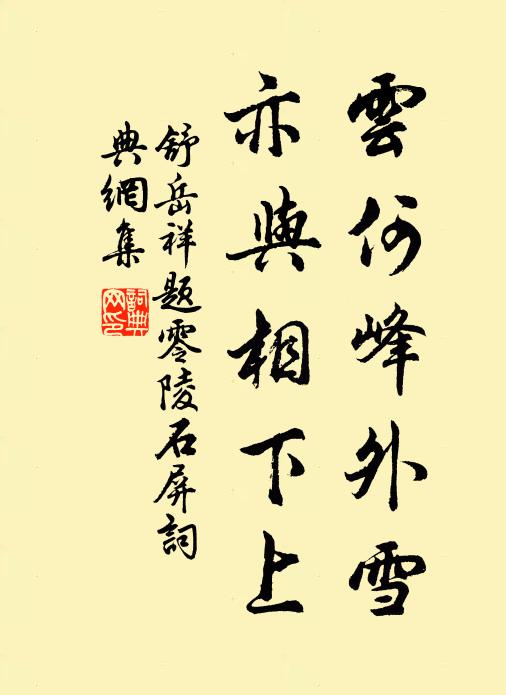 雲何峰外雪
亦與相下上
舒岳祥題零陵石屏詞
典網集
詞典
網印